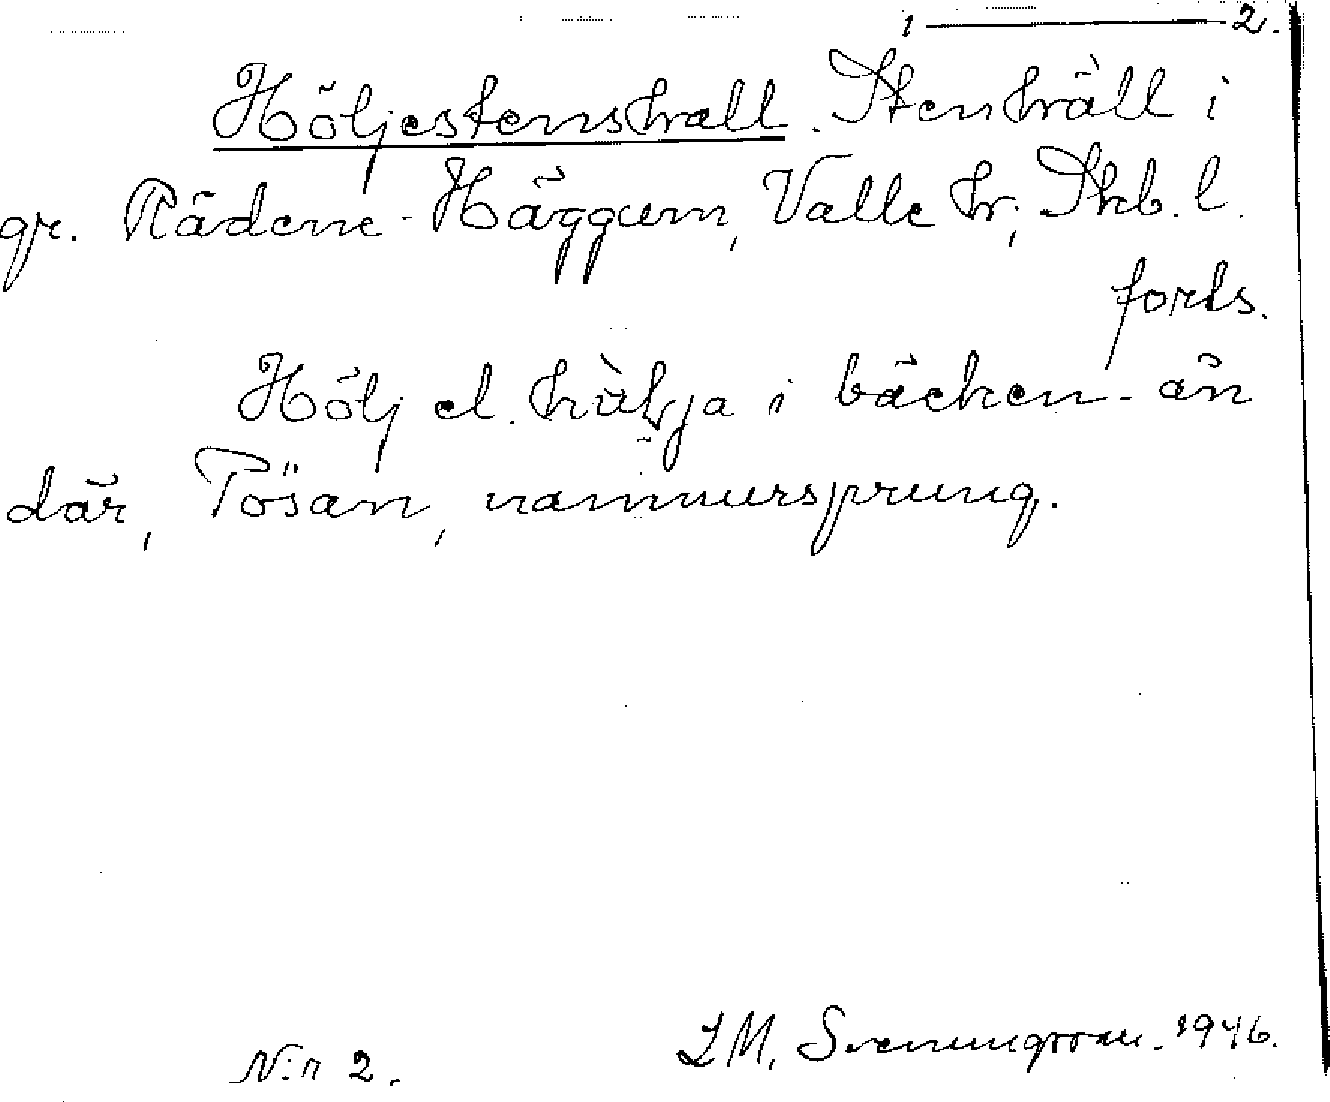 1 ——— 2.
Höljestenshall. Stenhäll i
gr. Rådene-Häggum, Valle hr; Skb. l.
forts.
Hölj el. i bäcken-ån
där, Pösan, namnursprung.
N:r 2. J M. Svenungsson. 1946.